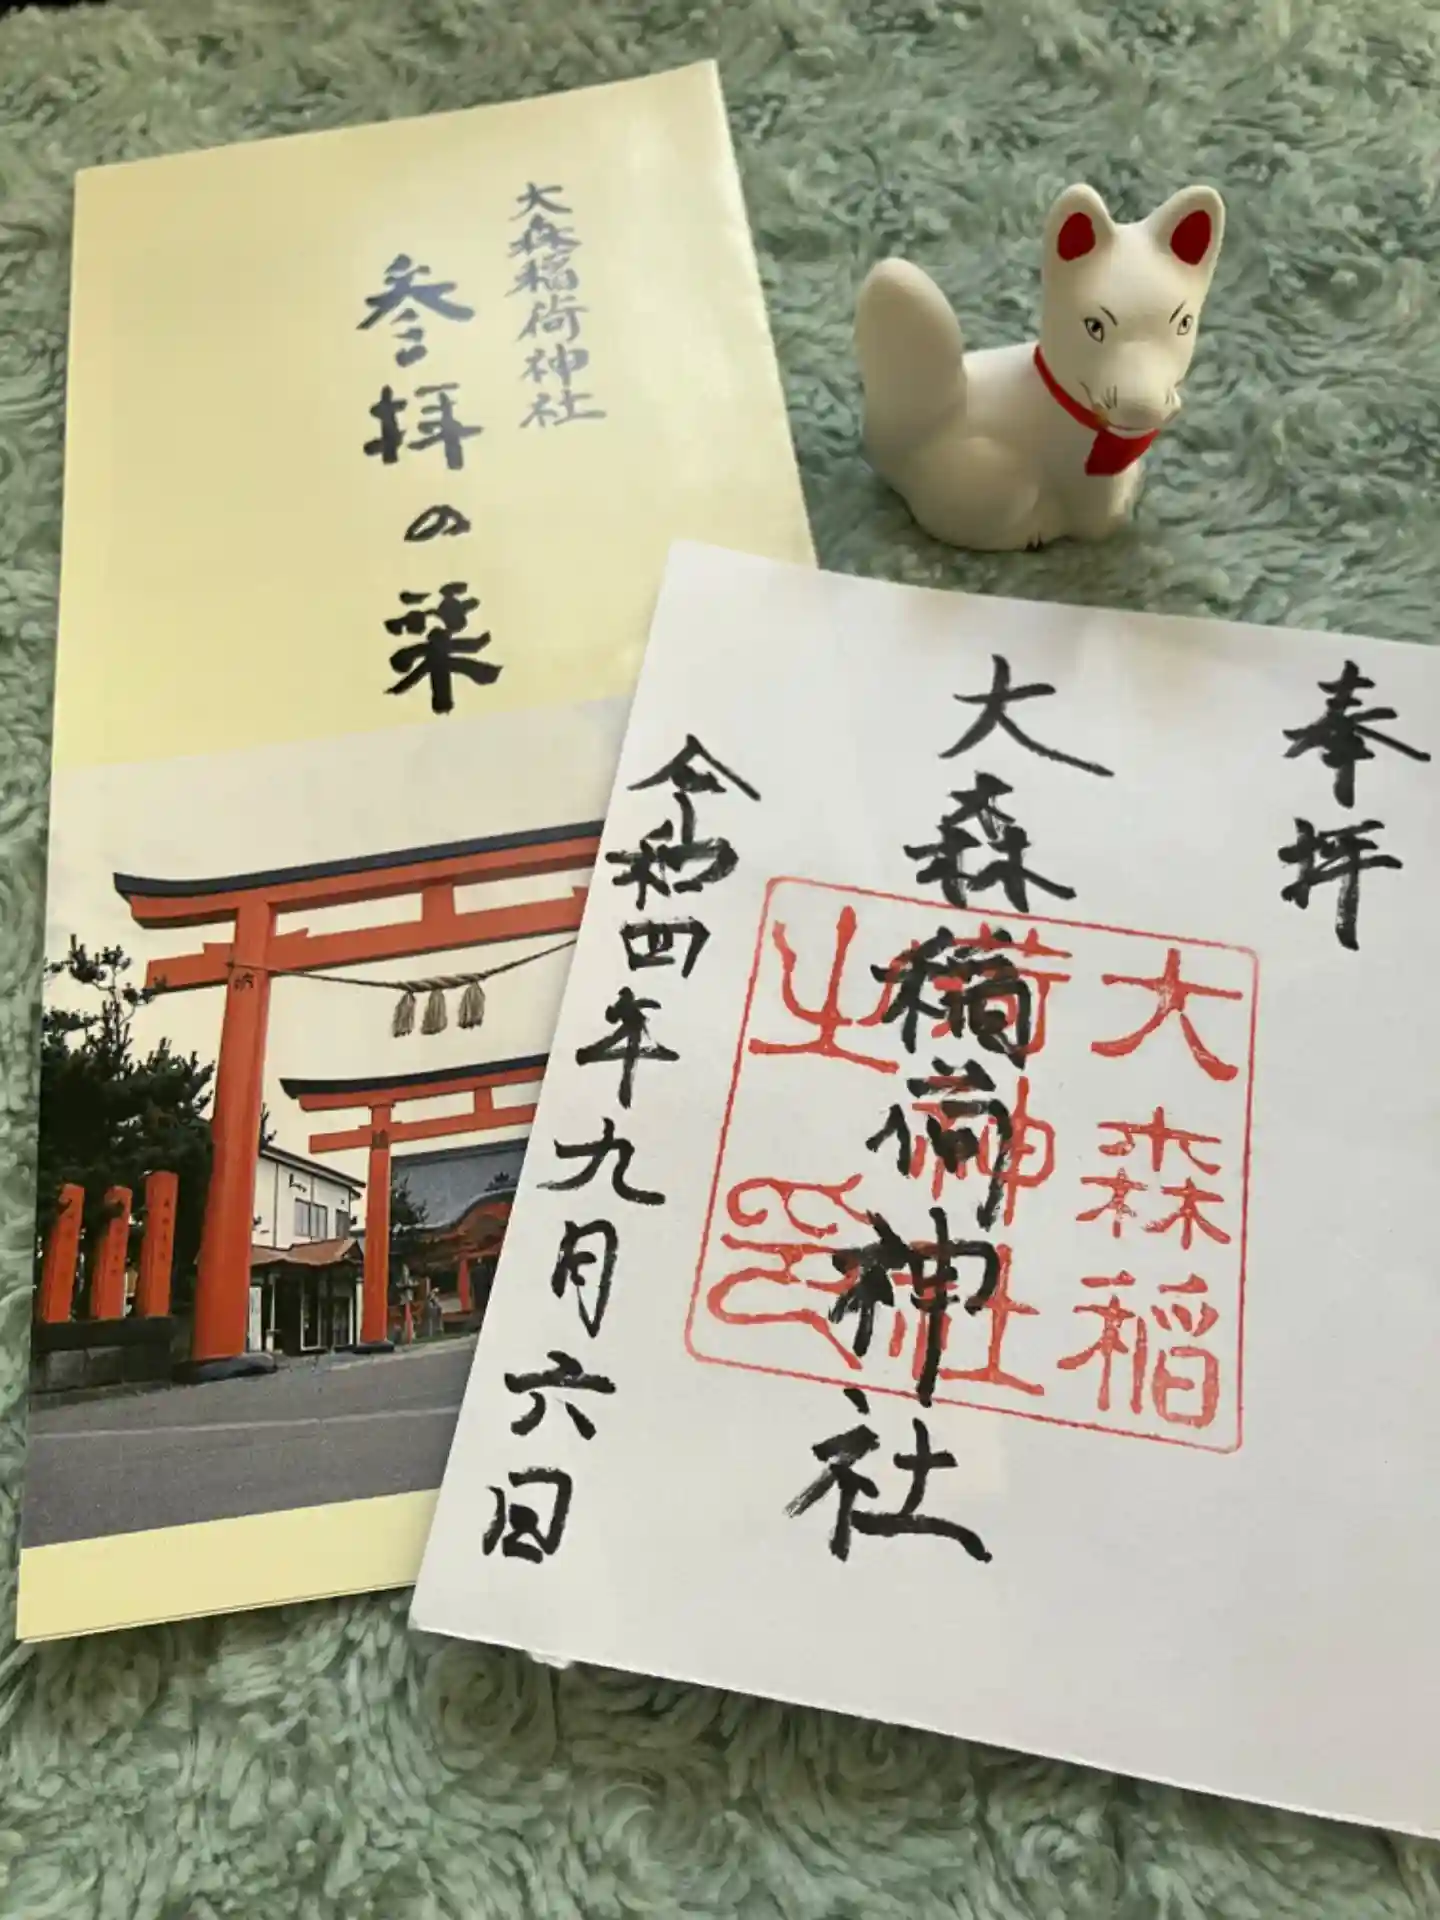 大森稲荷神社
参拝の栞
奉拝
大森稲荷神社
令和四年九月六日
大森稲
荷神社
之印